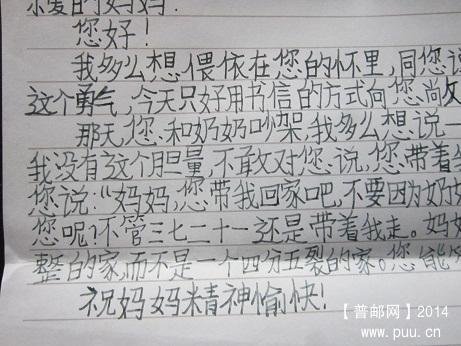 亲爱的妈妈:
您好!
我多么想偎依在您的怀里,同您说
这个勇气,今天只好用书信的方式向您尚
那天,您和奶奶吵架,我多么想说一
我没有这个胆量,不敢对您说,您带着
您说:“妈妈,您带我回家吧,不要因为奶奶
您呢?不管三七二十一还是带着我走。妈妈
整的家,而不是一个四分五裂的家。您能
祝妈妈精神愉快!
【普邮网】2014
www.puu.cn